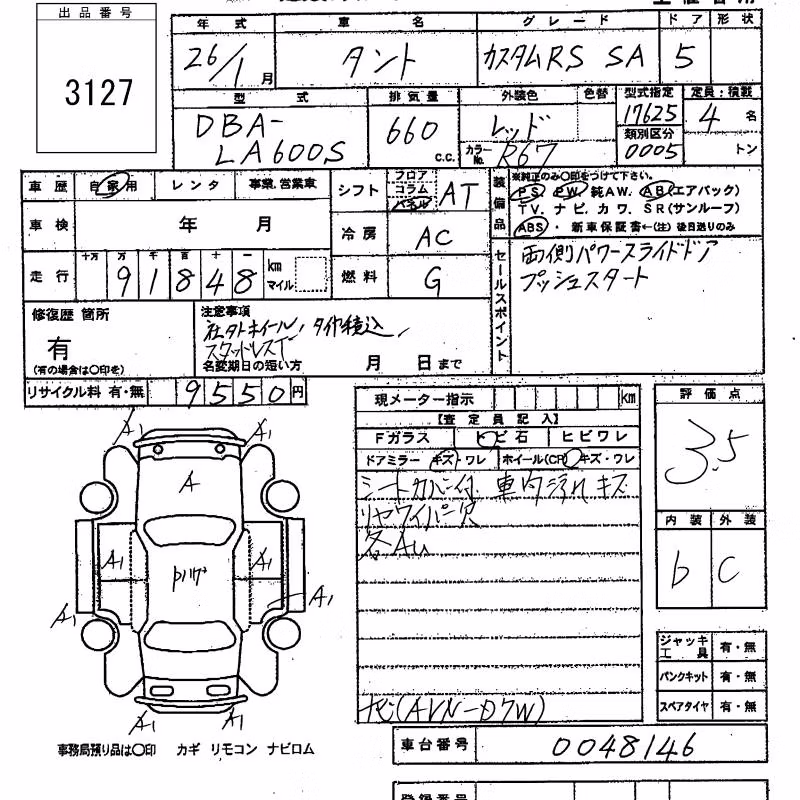 出品番号
3127
年式 車名 グレード ドア 形状
26/1月 タント カスタムRS SA 5
型式 排気量 外装色 色替 型式指定 定員・積載
DBA-LA600S 660 c.c. レッド カラーNo. R67 17625 4名
類別区分 0005 トン
車歴 自家用 レンタ 事業、営業車 シフト フロア コラム パネル AT
装備品 ※純正のみ〇印をつけて下さい。
PS PW 純AW. AB(エアバック)
TV. ナビ. カワ. SR(サンルーフ)
ABS・新車保証書←(注)後日送りのみ
車検 年 月 冷房 AC
走行 十万 万 千 百 十 一 91848 km マイル 燃料 G
セールスポイント 両側パワースライドドア
プッシュスタート
修復歴 箇所
有
(有の場合は〇印を)
注意事項
社外ホイール, タイヤ積込
スタッドレスT
名変期日の短い方 月 日まで
リサイクル料 有・無 9550円
現メーター指示 km
【査定員記入】
Fガラス トビ石 ヒビワレ
ドアミラー キズ・ワレ ホイール(CP) キズ・ワレ
シートカバー付 車内汚れ キズ
リヤワイパー欠
各AU
ナビ(AVN-D7W)
評価点
3.5
内装 外装
b C
ジャッキ工具 有・無
パンクキット 有・無
スペアタイヤ 有・無
A1 A1
A
A1 A1
A1 A1
A1 A1
事務局預り品は〇印 カギ リモコン ナビロム
車台番号 0048146
登録番号